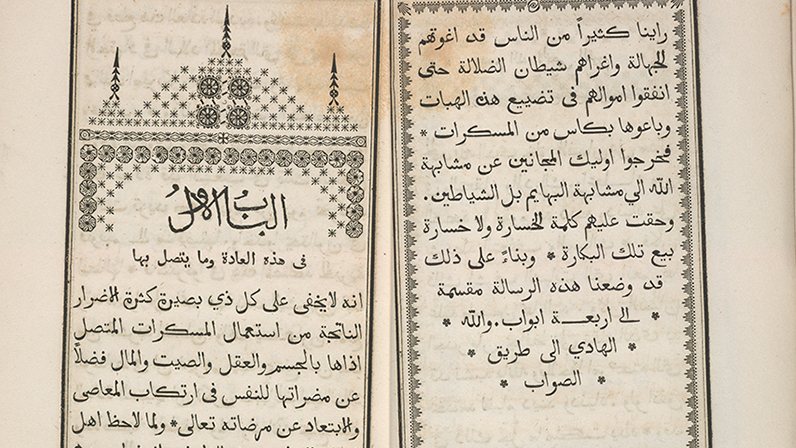 راينا كثيراً من الناس قد اغوتهم
الجهالة واغراهم شيطان الضلالة حتى
انفقوا اموالهم في تضييع هذه الهبات
وباعوها بكاس من المسكرات *
فخرجوا اوليك المجانين عن مشابهة
الله الي مشابهة البهايم بل الشياطين.
وحقت عليهم كلمة الخسارة ولا خسارة
بيع تلك البكارة * وبناءً على ذلك
قد وضعنا هذه الرسالة مقسمة
* الى اربعــة ابواب. والله *
* الهادي الى طريق *
* الصواب *
الباب الاول
في هذه العادة وما يتصل بها
انه لا يخفى على كل ذي بصيرة كثرة الاضرار
الناتجة من استعمال المسكرات المتصل
اذاها بالجسم والعقل والصيت والمال فضلاً
عن مضراتها للنفس في ارتكاب المعاصي
والابتعاد عن مرضاته تعالى * ولما لاحظ اهل